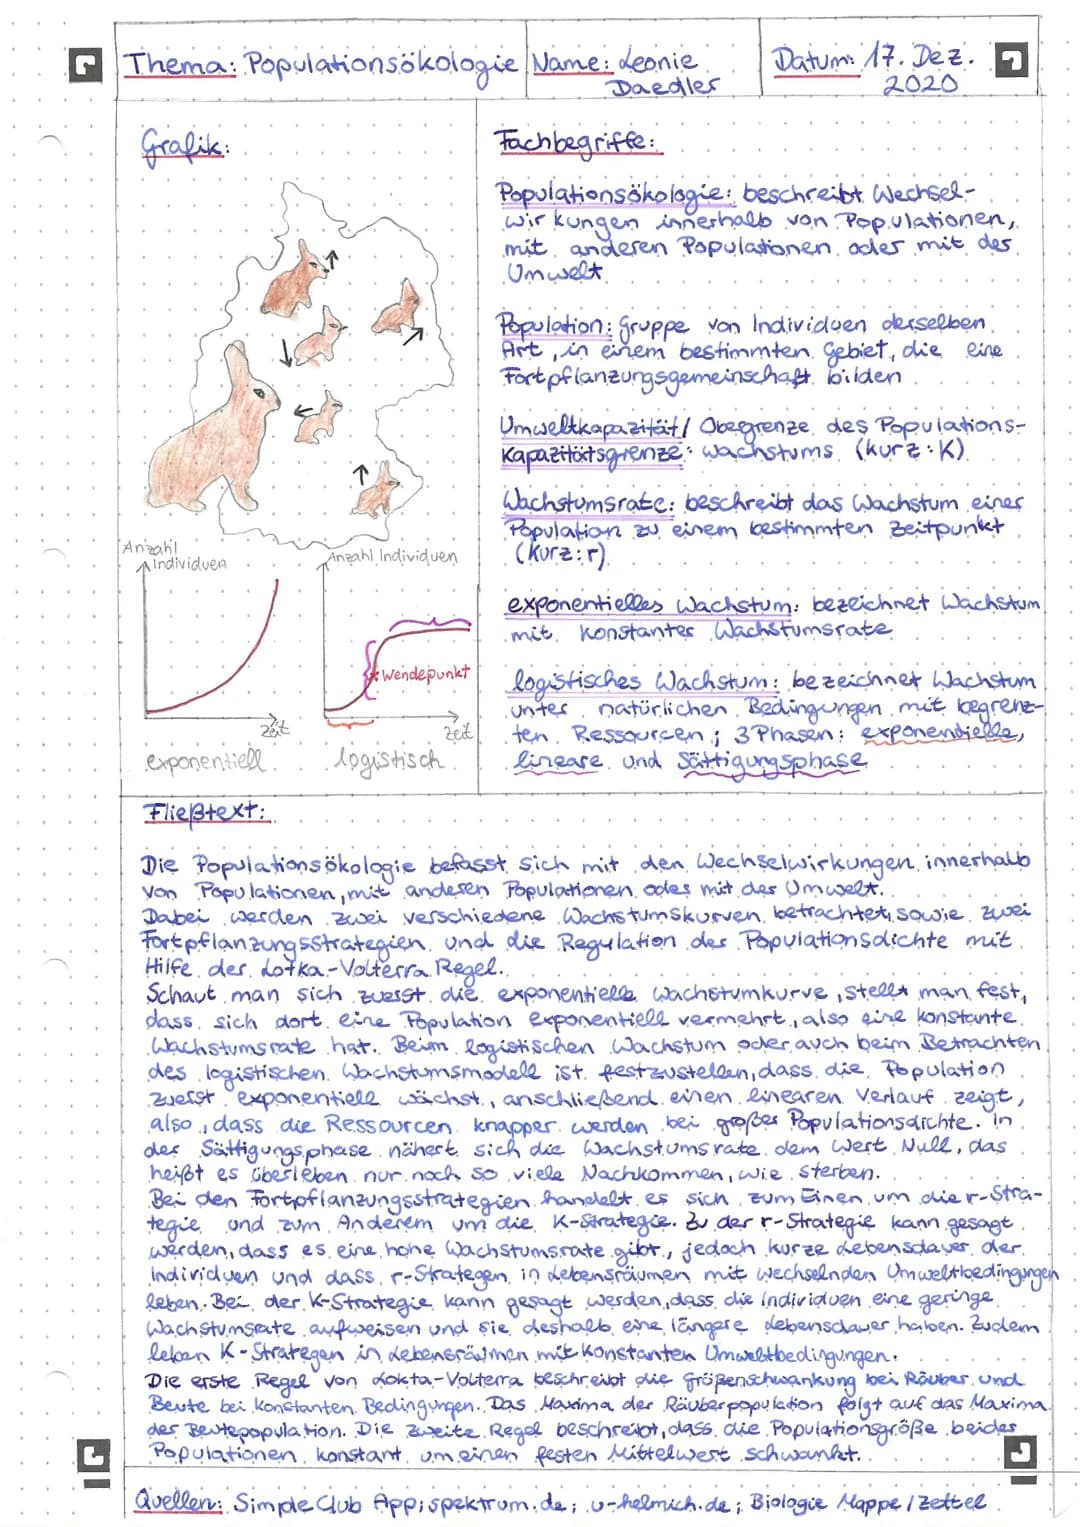 Thema: Populationsökologie
Name: Leonie
Daedler
Datum: 17. Dez.
2020
Grafik:
Anzahl
Individuen
Zeit
exponentiell
Anzahl Individuen
Wendepunkt
Zeit
logistisch
Fachbegriffe:
Populationsökologie: beschreibt Wechsel-
wirkungen innerhalb von Populationen,
mit anderen Populationen oder mit der
Umwelt
Population: Gruppe von Individuen derselben
Art, in einem bestimmten Gebiet, die eine
Fortpflanzungsgemeinschaft bilden
Umweltkapazität/ Obergrenze des Populations-
Kapazitätsgrenze: wachstums (kurz: K)
Wachstumsrate: beschreibt das Wachstum einer
Population zu einem bestimmten Zeitpunkt
(kurz: r)
exponentielles Wachstum: bezeichnet Wachstum
mit konstanter Wachstumsrate
logistisches Wachstum: bezeichnet Wachstum
unter natürlichen Bedingungen mit begrenz-
ten Ressourcen; 3 Phasen: exponentielle,
lineare und Sättigungsphase
Fließtext:
Die Populationsökologie befasst sich mit den Wechselwirkungen innerhalb
von Populationen, mit anderen Populationen oder mit der Umwelt.
Dabei werden zwei verschiedene Wachstumskurven betrachtet, sowie zwei
Fortpflanzungsstrategien und die Regulation der Populationsdichte mit
Hilfe der Lotka-Volterra Regel.
Schaut man sich zuerst die exponentielle Wachstumkurve, stellt man fest,
dass sich dort eine Population exponentiell vermehrt, also eine konstante
Wachstumsrate hat. Beim logistischen Wachstum oder auch beim Betrachten
des logistischen Wachstumsmodell ist festzustellen, dass die Population
zuerst exponentiell wächst, anschließend einen linearen Verlauf zeigt,
also, dass die Ressourcen knapper werden bei großer Populationsdichte. In
der Sättigungsphase nähert sich die Wachstumsrate dem Wert Null, das
heißt es überleben nur noch so viele Nachkommen, wie sterben.
Bei den Fortpflanzungsstrategien handelt es sich zum Einen um die r-Stra-
tegie und zum Anderem um die K-Strategie. Zu der r-Strategie kann gesagt
werden, dass es eine hohe Wachstumsrate gibt, jedoch kurze Lebensdauer der
Individuen und dass r-Strategen in Lebensräumen mit wechselnden Umweltbedingungen
leben. Bei der K-Strategie kann gesagt werden, dass die Individuen eine geringe
Wachstumsrate aufweisen und sie deshalb eine längere Lebensdauer haben. Zudem
leben K-Strategen in Lebensräumen mit konstanten Umweltbedingungen.
Die erste Regel von Lokta-Volterra beschreibt die Größenschwankung bei Räuber und
Beute bei konstanten Bedingungen. Das Maxima der Räuberpopulation folgt auf das Maxima
der Beutepopulation. Die zweite Regel beschreibt, dass die Populationsgröße beider
Populationen konstant um einen festen Mittelwert schwankt.
Quellen: Simple Club App; spektrum.de; u-helmich.de; Biologie Mappe / Zettel